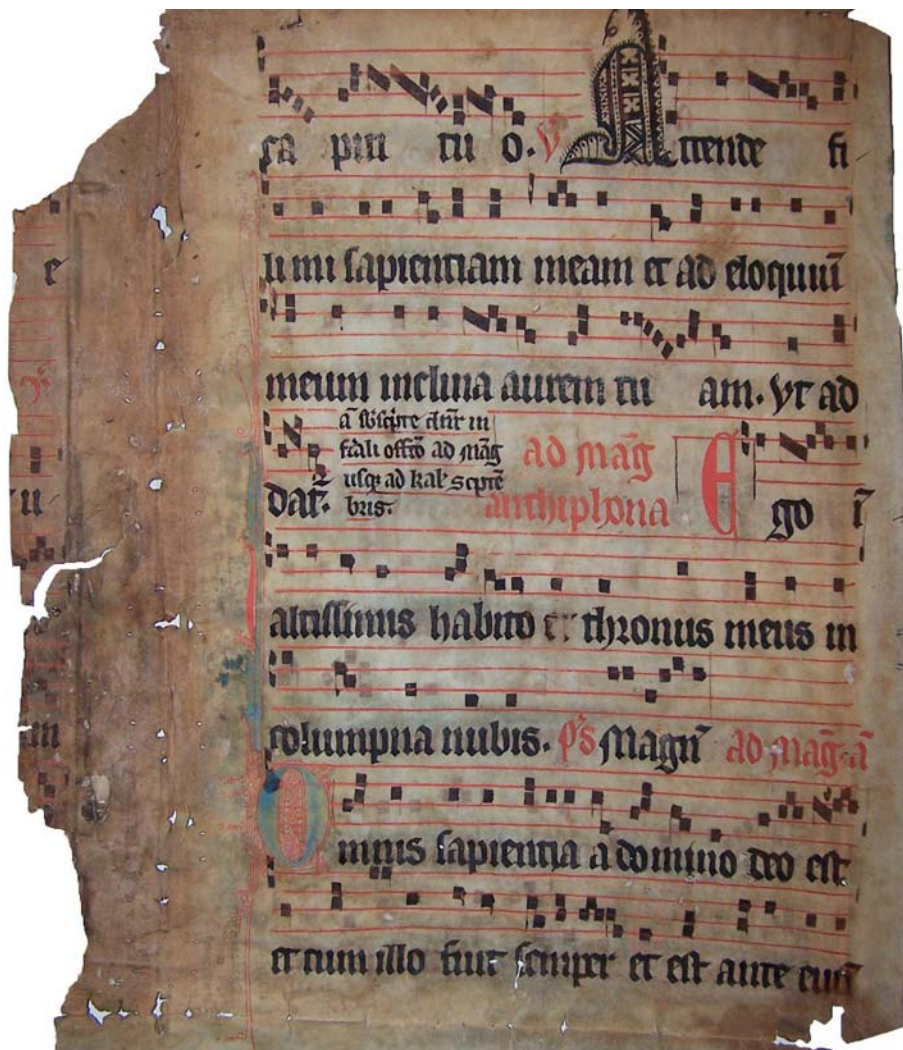 ca piti tu o. V Attende fi
li mi sapientiam meam et ad eloquiū
meum inclina aurem tu am. Vt ad
ā sbscpte dnr in
fdali offō ad māg
usq ad kal septē
bris.
dat.
ad māg
anthiphona
Ego ī
altissimis habito et thronus meus in
columpna nubis. ps Magn ad māg ā
Omnis sapientia a domino deo est
et cum illo fuit semper et est ante euū
e
u
m